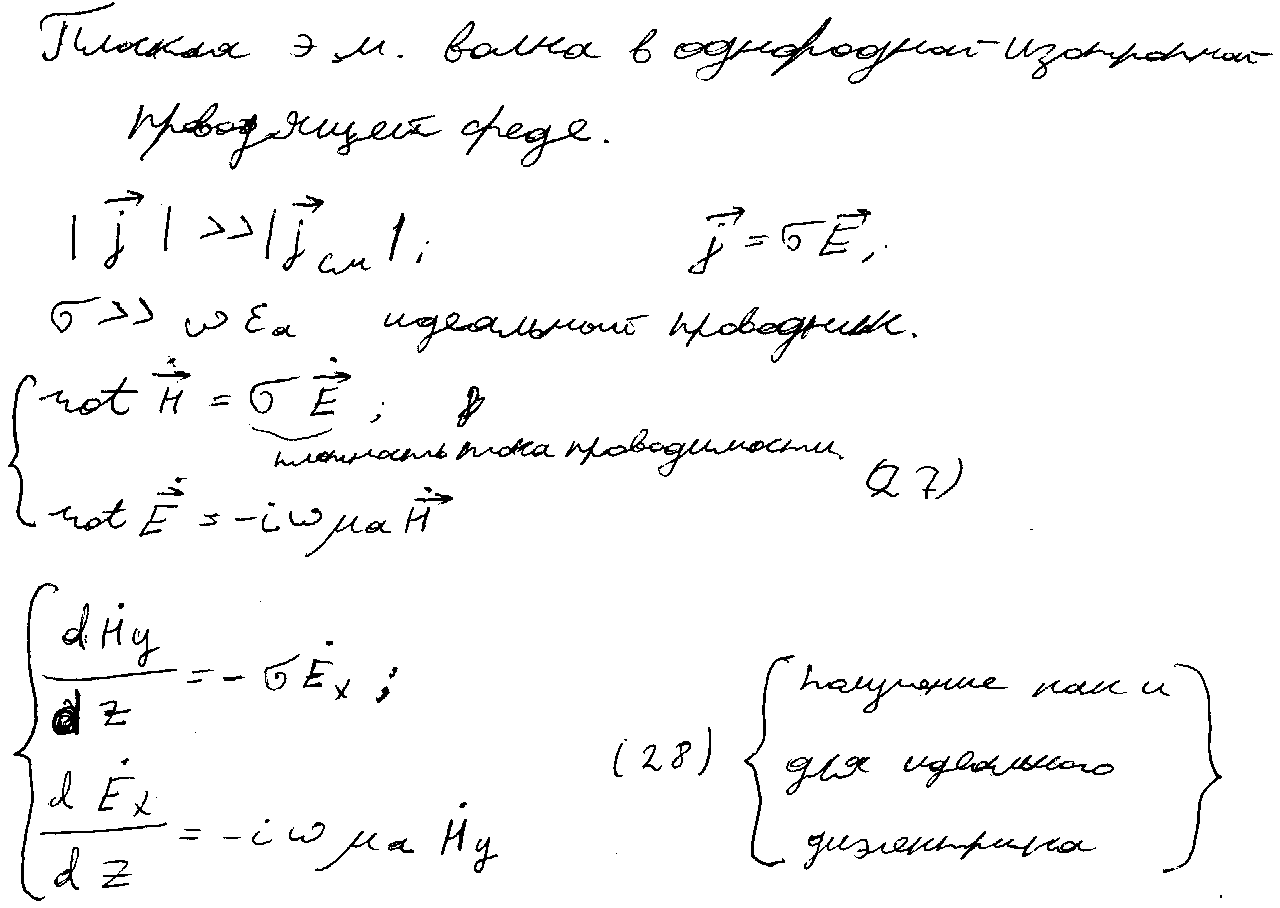 Плоская э м. волна в однородной изотропной
проводящей среде.
|j⃗| >> |j⃗см|; j⃗ = σE⃗;
σ >> ωεa идеальный проводник.
rot H⃗̇ = σ E⃗̇ ;
плотность тока проводимости
(27)
rot E⃗̇ = -iωμa H⃗̇
dḢy/dz = - σĖx ;
(28) { получение как и
для идеального
диэлектрика }
dĖx/dz = -iωμa Ḣy